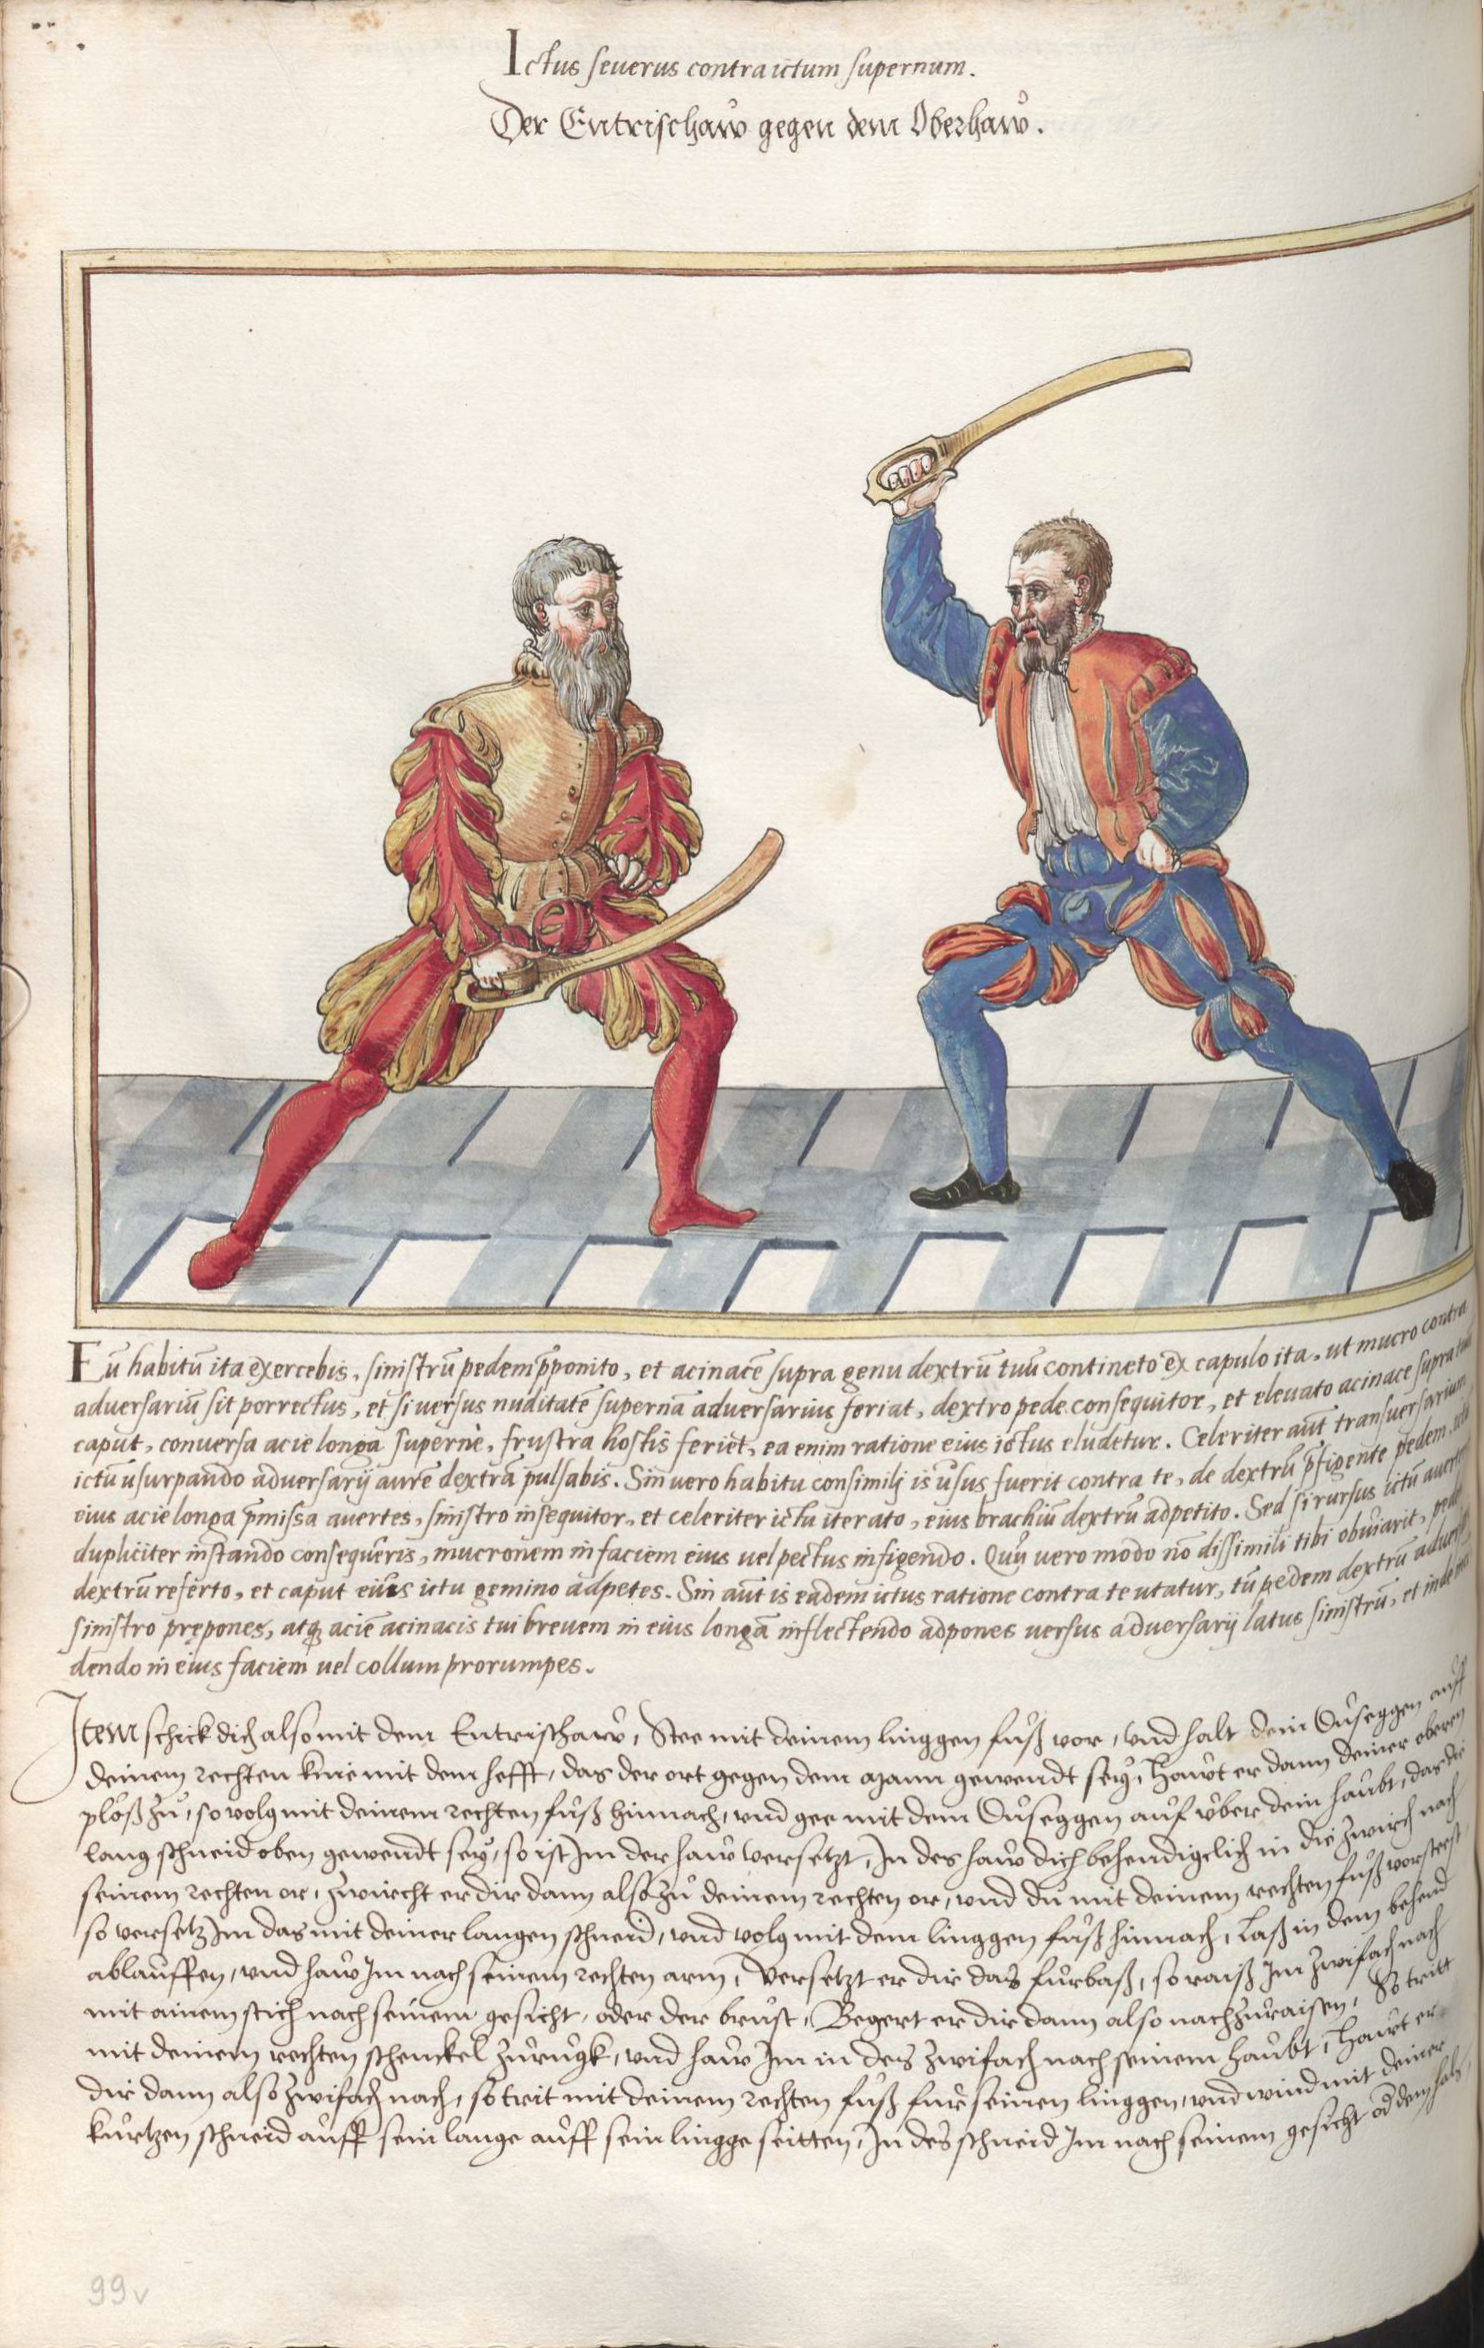 Ictus seuerus contra ictum supernum.
Der Entrischaw gegen dem Oberhaw.
Eū habitū ita exercebis, sinistrū pedem p̄ponito, et acinacē supra genu dextrū tuū contineto ex capulo ita, ut mucro contra
aduersariū sit porrectus, et si uersus nuditatē supernā aduersarius feriat, dextro pede consequitor, et eleuato acinace supra
caput, conuersa acie longa supernè, frustra hostis feriet, ea enim ratione eius ictus eludetur. Celeriter aūt transuersarium
ictū usurpando aduersarij aurē dextrā pulsabis. Sin uero habitu consimilj is usus fuerit contra te, de dextrū p̄figente pedem,
eius acie longa p̄missa auertes, sinistro insequitor, et celeriter ictu iterato, eius brachiū dextrū adpetito. Sed si rursus ictū
dupliciter instando consequeris, mucronem in faciem eius uel pectus infigendo. Quū uero modo nō dissimili tibi obuiarit,
dextrū referto, et caput eius ictu gemino adpetes. Sin aūt is eadem ictus ratione contra te utatur, tū pedem dextrū
sinistro prępones, atq aciē acinacis tui breuem in eius longā inflectendo adpones uersus aduersarij latus sinistrū, et inde
dendo in eius faciem uel collum prorumpes.
Item schick dich also mit dem Entrischaw, Stee mit deinem linggen fuß vor, und halt dein Duseggen auff
deinem rechten knie mit dem hefft, das der ort gegen dem mann gewendt sey, Hawt er dann deiner oberen
plöß zu, so volg mit deinem rechten fuß hinnach, und gee mit dem Duseggen auf uber dein haubt, das die
lang schneid oben gewendt sey, so ist Im der haw versetzt, In des haw dich behendigelich in die zwirch nach
seinem rechten or, zwircht er dir dann also zu deinem rechten or, und du mit deinem rechten fuß vorsteest
so versetz Im das mit deiner langen schneid, und volg mit dem linggen fuß hinnach, Laß in dem behend
ablauffen, und haw Im nach seinem rechten arm, Versetzt er dir das furbaß, so raiß Im zwifach nach
mit ainem stich nach seinem gesicht, oder der brust, Begert er dir dann also nachzuraisen, So tritt
mit deinem rechten schenckel zurugk, und haw Im in des zwifach nach seinem haubt, Hawt er
dir dann also zwifach nach, so trit mit deinem rechten fuß fur seinen linggen, und wind mit deiner
kurtzen schneid auff sein lange auff sein lingge seitten, In des schneid Im nach seinem gesicht od dem hals
99v